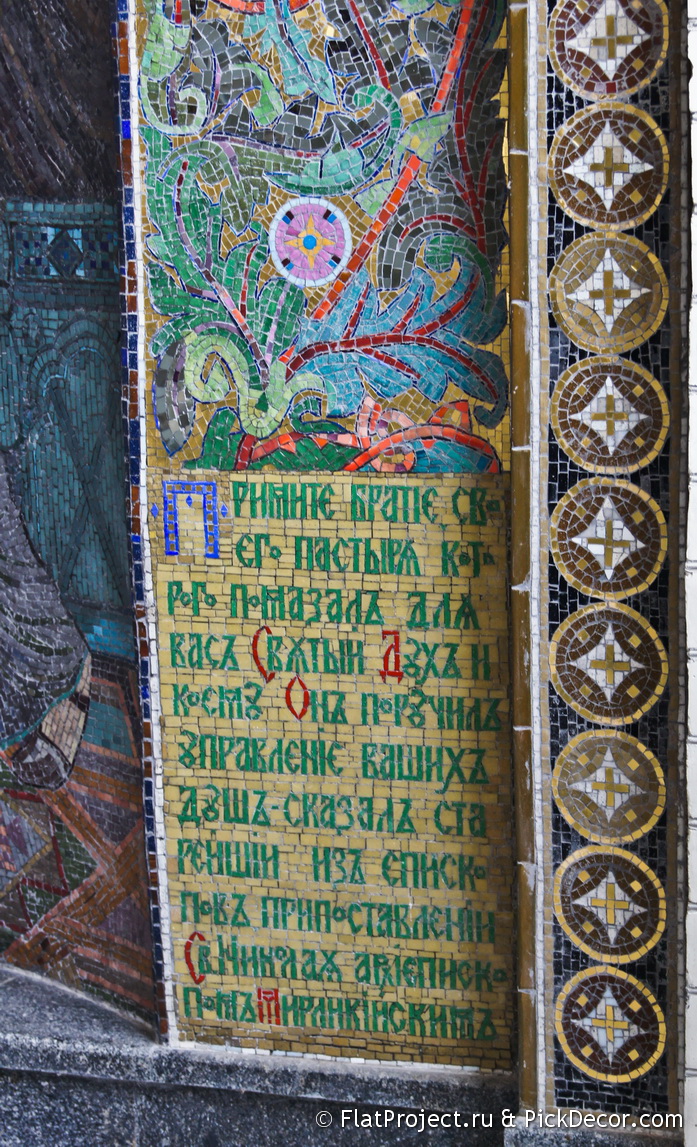 Примите братїе сво
его пастыря кото
рого помазалъ для
васъ Святыи Духъ и
кому Онъ поручилъ
управленїе вашихъ
душъ-сказалъ ста
рѣйшїи изъ еписко
повъ припоставленїи
Св. Николая архїеписко
помъ Мирликїйскимъ
© FlatProject.ru & PickDecor.com